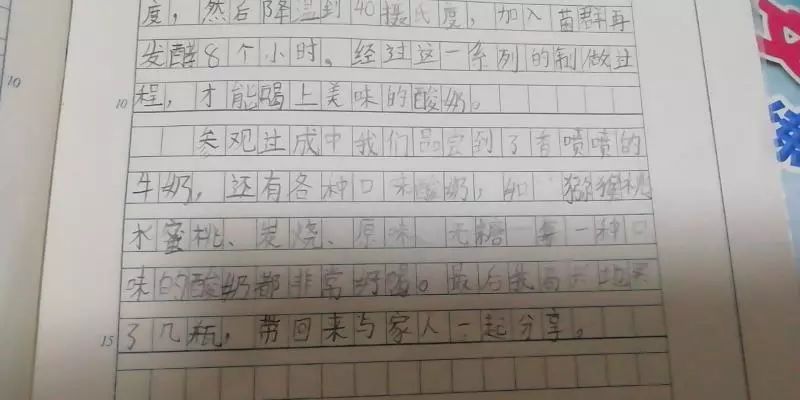 度，然后降温到40摄氏度，加入苗群再
10
发酵8个小时。经过这一系列的制做过
10 程，才能喝上美味的酸奶。
参观过成中我们品尝到了有喷喷的
牛奶，还有各种口味酸奶，如 猕猴桃
水蜜桃、炭烧、原味、无糖 每一种口
味的酸奶都非常好喝。最后我高兴地买
15 了几瓶，带回来与家人一起分享。